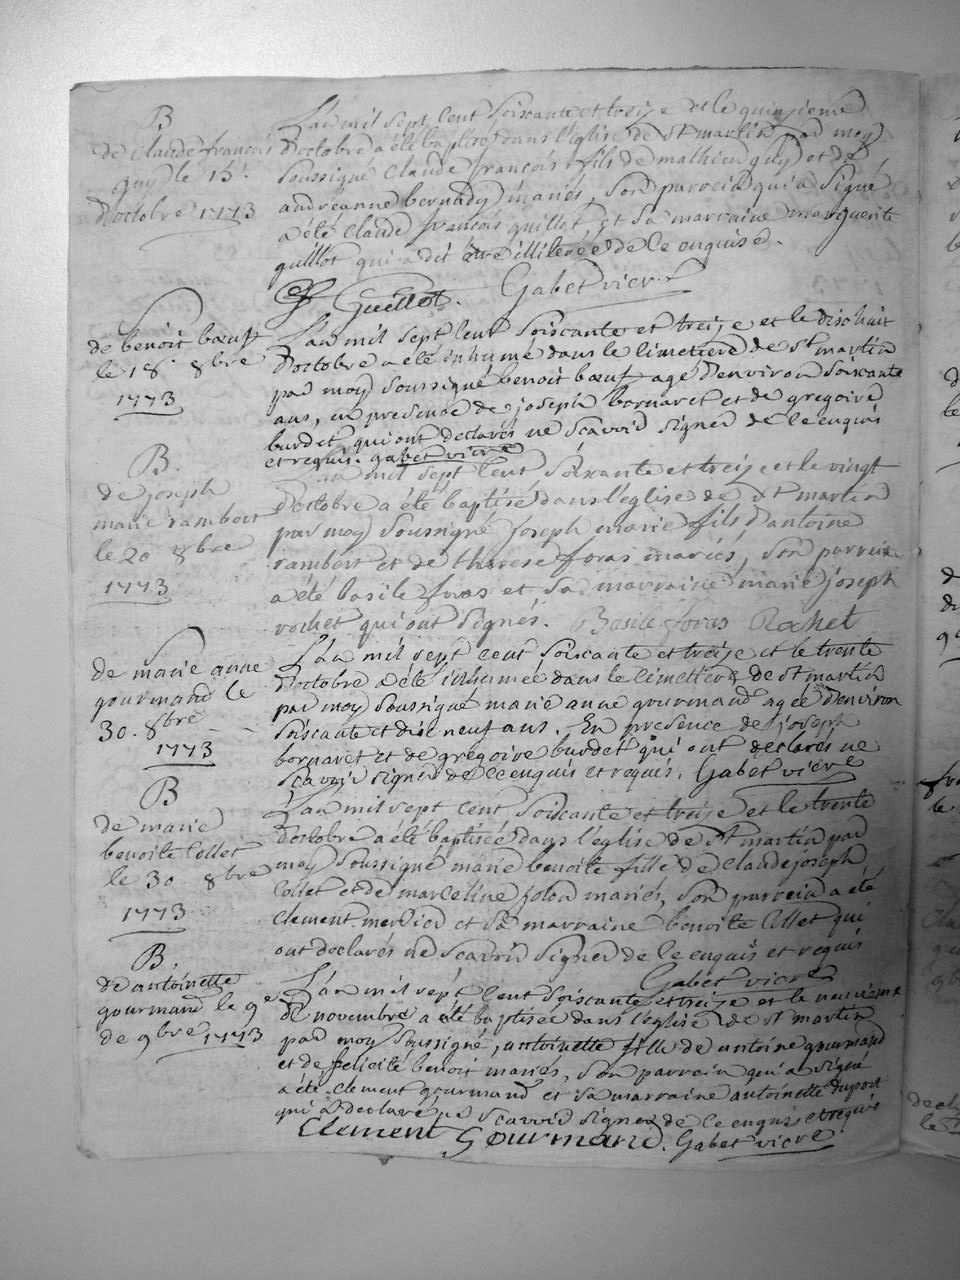 B
de claude francois
guy le 15.
d'octobre 1773
L'an mil sept cent soixante et treize et le quinzieme
d'octobre a été baptisé dans l'église de st martin par moy
soussigné claude francois fils de mathieu guy et de
andréanne bernady mariés, son parrein qui a signé
a été claude francois guillot, et sa marraine marguerite
guillot qui a dit être illiterée de ce enquise.
Guillot. Gabet vicre
de benoit bœuf
le 18 8bre
1773
L'an mil sept cent soiscante et treize et le dishuit
d'octobre a été inhumé dans le cimetiere de st martin
par moy soussigné benoit bœuf agé d'environ soiscante
ans, en presence de joseph bornaret et de gregoire
burdet qui ont declarés ne scavoir signer de ce enquis
et requis. gabet vicre
B.
de joseph
marie rambert
le 20 8bre
1773
L'an mil sept cent soixante et treize et le vingt
d'octobre a été baptisé dans l'eglise de st martin
par moy soussigné joseph marie fils d'antoine
rambert et de therese foras mariés, son parrein
a été basile foras et sa marraine marie joseph
rochet qui ont signés. Basile foras Rochet
de marie anne
gourmand le
30. 8bre
1773
L'an mil sept cent soiscante et treize et le trente
d'octobre a été inhumée dans le cimetiere de st martin
par moy soussigné marie anne gourmand agée d'environ
soiscante et dix neuf ans. En presence de joseph
bornaret et de gregoire burdet qui ont declarés ne
scavoir signer de ce enquis et requis. Gabet vicre
B
de marie
benoite Collet
le 30 8bre
1773
L'an mil sept cent soiscante et treize et le trente
d'octobre a été baptisée dans l'église de st martin par
moy soussigné marie benoite fille de Claude joseph
Collet et de marceline folon mariés, son parrein a été
Clement mercier et sa marraine benoite Collet qui
ont declarés ne scavoir signer de ce enquis et requis
Gabet vicre
B.
de antoinette
gourmand le 9e
de 9bre 1773
L'an mil sept cent soiscante et treize et le neuvieme
de novembre a été baptisée dans l'eglise de st martin
par moy soussigné, antoinette fille de antoine gourmand
et de felicité benoit mariés, son parrein qui a signé
a été clement gourmand et sa marraine antoinette duport
qui a declaré ne scavoir signer de ce enquise et requise
Clement Gourmand. Gabet vicre